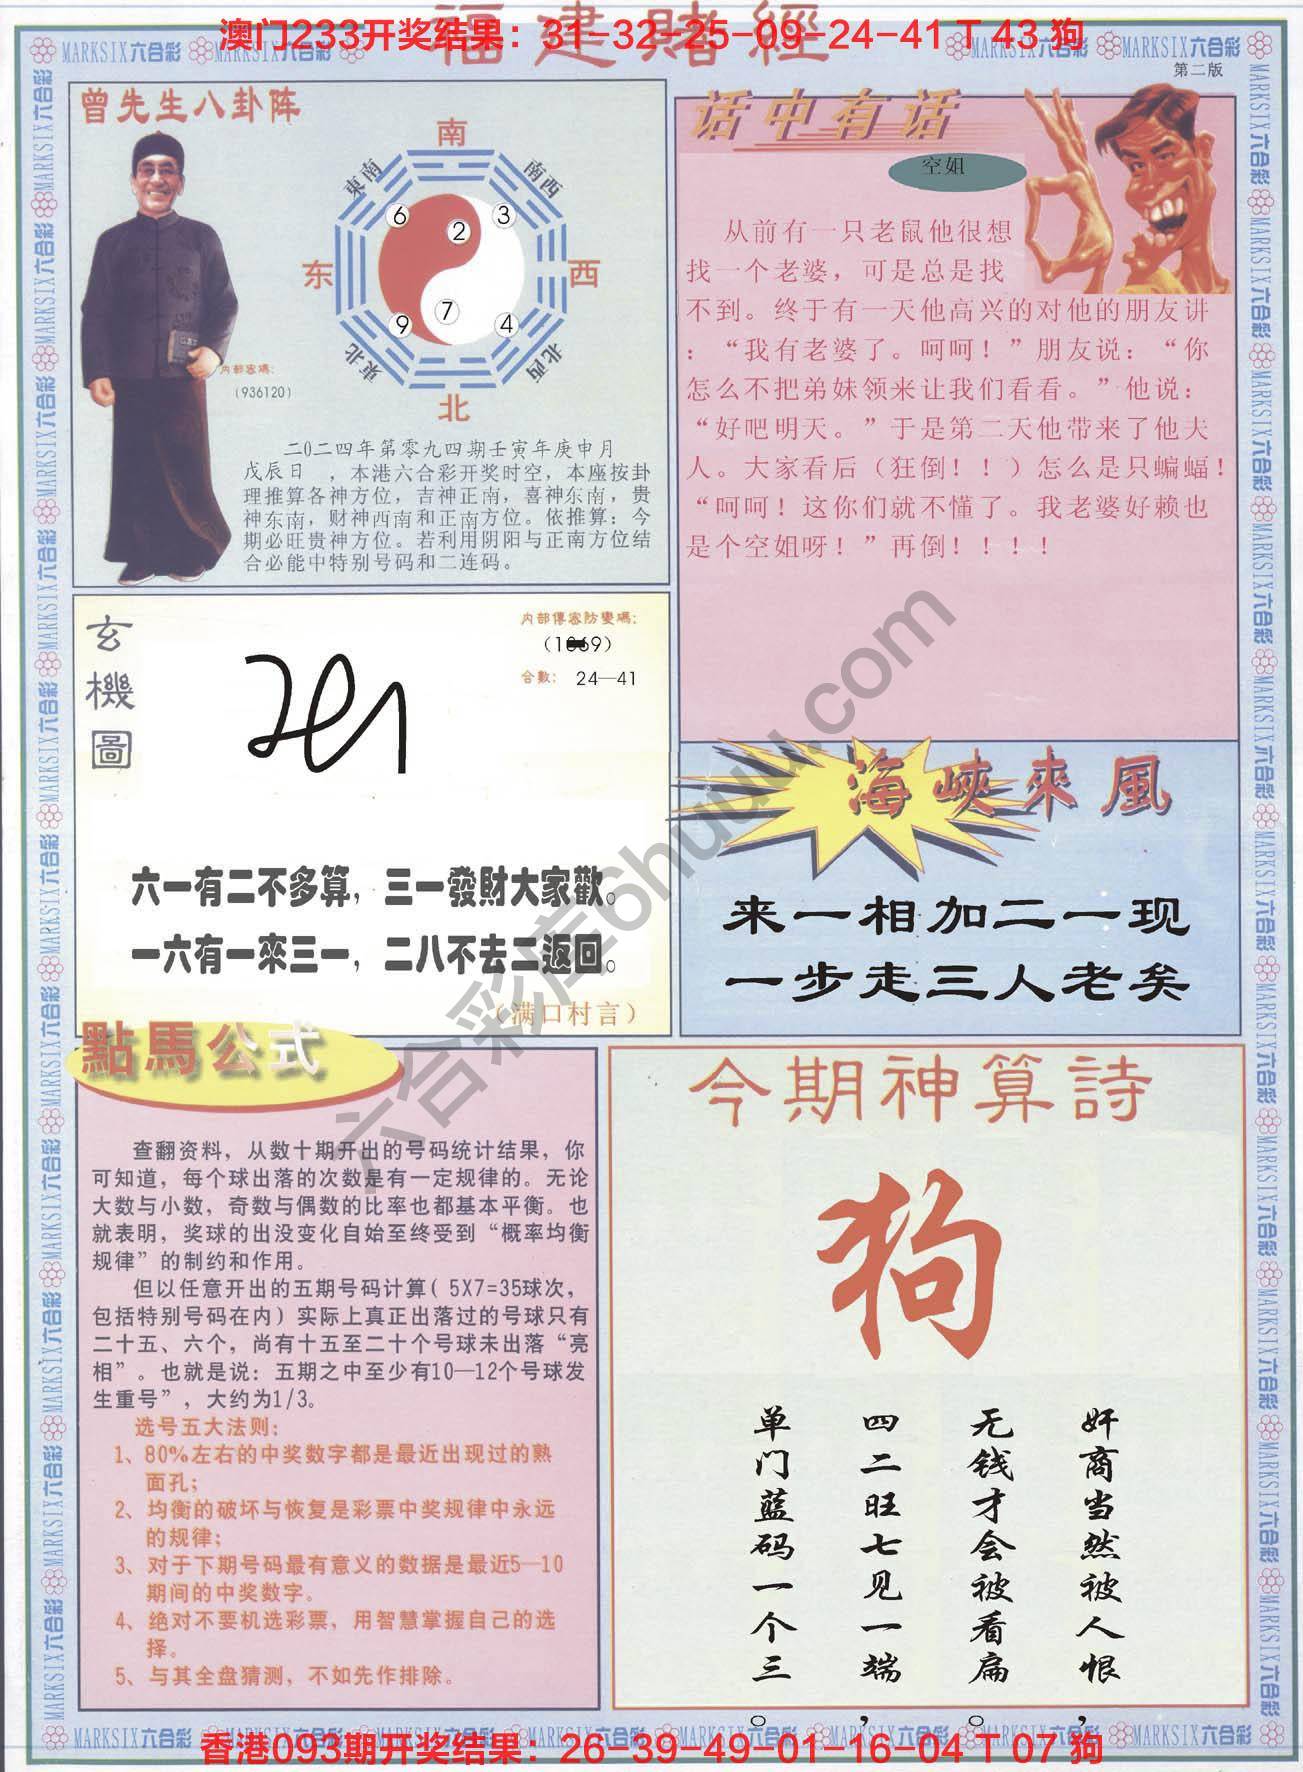 福建賭經
澳门233开奖结果：31-32-25-09-24-41 T 43 狗
MARKSIX六合彩
第二版
曾先生八卦阵
南
東南
南西
6
2
3
东
西
9
7
4
東北
北西
北
内部密碼:
(936120)
二0二四年第零九四期壬寅年庚申月
戊辰日 ，本港六合彩开奖时空，本座按卦
理推算各神方位，吉神正南，喜神东南，贵
神东南，财神西南和正南方位。依推算：今
期必旺贵神方位。若利用阴阳与正南方位结
合必能中特别号码和二连码。
话中有话
空姐
从前有一只老鼠他很想
找一个老婆，可是总是找
不到。终于有一天他高兴的对他的朋友讲
：“我有老婆了。呵呵！”朋友说：“你
怎么不把弟妹领来让我们看看。”他说：
“好吧明天。”于是第二天他带来了他夫
人。大家看后（狂倒！！）怎么是只蝙蝠！
“呵呵！这你们就不懂了。我老婆好赖也
是个空姐呀！”再倒！！！！
玄機圖
内部傳密防變碼:
合數: 24—41
六一有二不多算，三一發財大家歡。
一六有一來三一，二八不去二返回。
（满口村言）
海峽來風
来一相加二一现
一步走三人老矣
點馬公式
查翻资料，从数十期开出的号码统计结果，你
可知道，每个球出落的次数是有一定规律的。无论
大数与小数，奇数与偶数的比率也都基本平衡。也
就表明，奖球的出没变化自始至终受到“概率均衡
规律”的制约和作用。
但以任意开出的五期号码计算( 5X7=35球次，
包括特别号码在内）实际上真正出落过的号球只有
二十五、六个，尚有十五至二十个号球未出落“亮
相”。也就是说：五期之中至少有10—12个号球发
生重号”，大约为1/3。
选号五大法则：
1、80%左右的中奖数字都是最近出现过的熟
面孔；
2、均衡的破坏与恢复是彩票中奖规律中永远
的规律；
3、对于下期号码最有意义的数据是最近5—10
期间的中奖数字。
4、绝对不要机选彩票，用智慧掌握自己的选
择。
5、与其全盘猜测，不如先作排除。
今期神算詩
狗
奸商当然被人恨，
无钱才会被看扁。
四二旺七见一端，
单门蓝码一个三。
六合彩库6huuu.com
香港093期开奖结果：26-39-49-01-16-04 T 07 狗